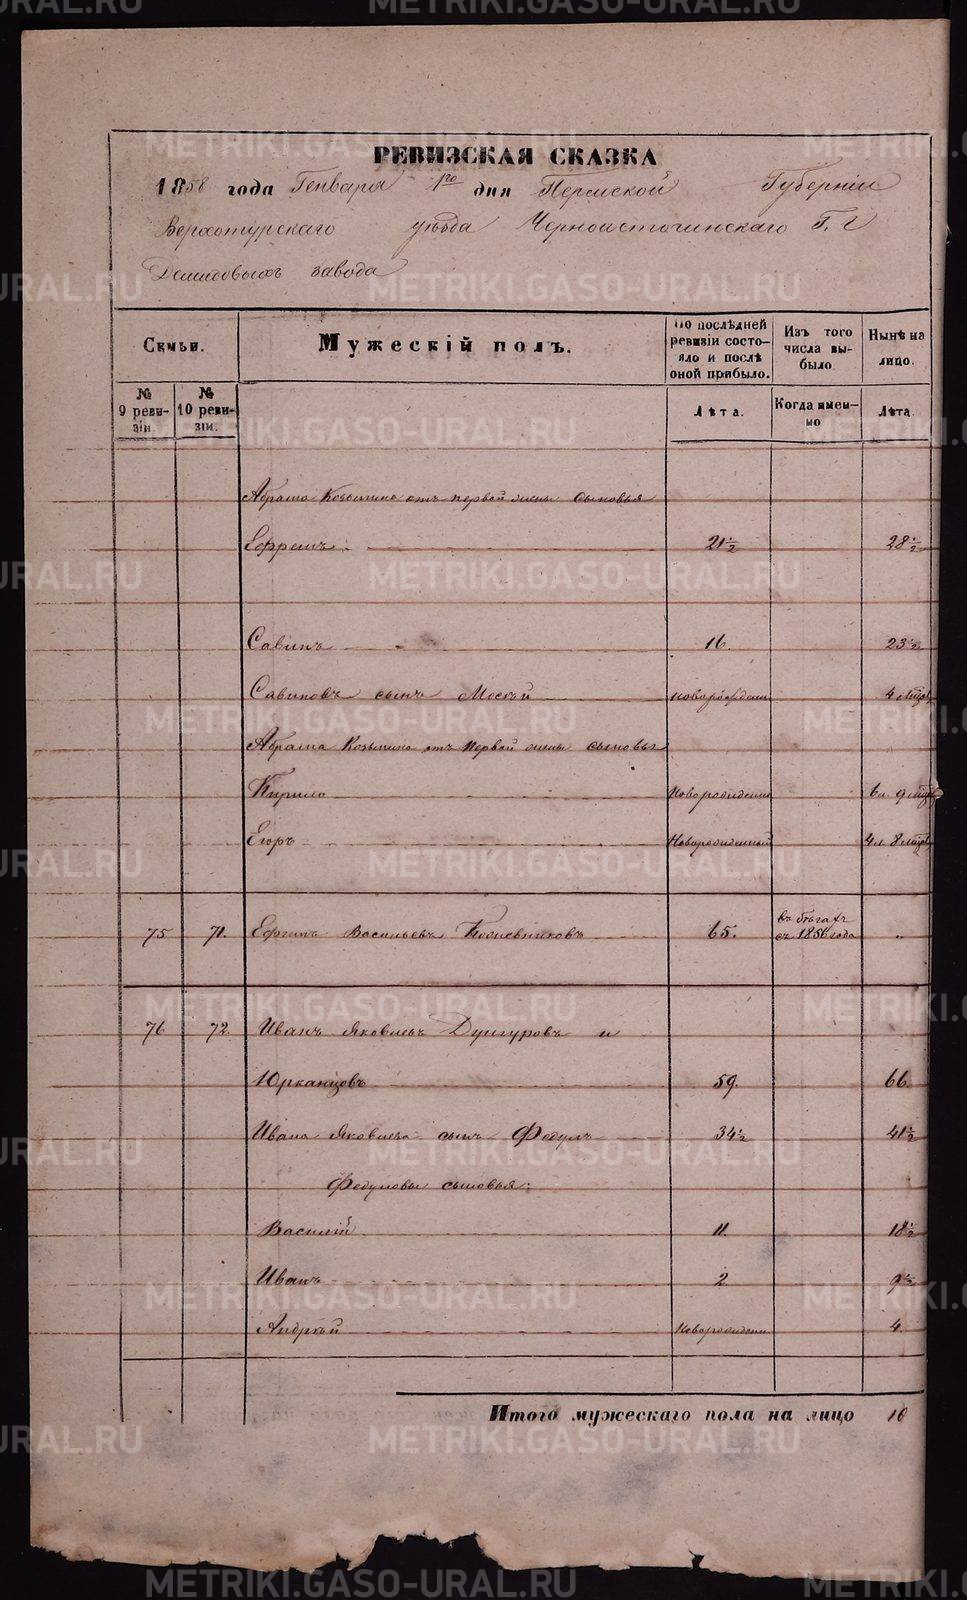 РЕВИЗСКАЯ СКАЗКА
1858 года Генваря 1го дня Пермской Губерніи
Верхотурскаго уѣзда Черноисточинскаго Г.г.
Демидовыхъ завода
Семьи.
Мужескій полъ.
По послѣдней ревизіи состояло и послѣ оной прибыло.
Изъ того числа выбыло.
Нынѣ на лицо.
№ 9 ревизіи.
№ 10 ревизіи.
Лѣта.
Когда именно
Лѣта.
Абрама Козьмина отъ первой жены сыновья
Ефремъ 21½ 28½
Савинъ 16. 23½
Савиновъ сынъ Мосѣй новорожден 4 мѣсяц
Абрама Козьмина отъ первой жены сыновья
Кирило Новорожденн 6 л. 9 мѣсяц
Егоръ Новорожденный 4 л. 8 мѣсяц
75 71. Васильевъ 65. въ бѣгахъ съ 1856 года „
76 72. Иванъ Яковлевъ Дунгуровъ и
Юрканцовъ 59. 66.
Ивана Яковлева сынъ Федулъ 34½ 41½
Федуловы сыновья:
Василій 11. 18½
Иванъ 2 9½
Андрѣй Новорожден 4.
Итого мужескаго пола на лицо 10
METRIKI.GASO-URAL.RU